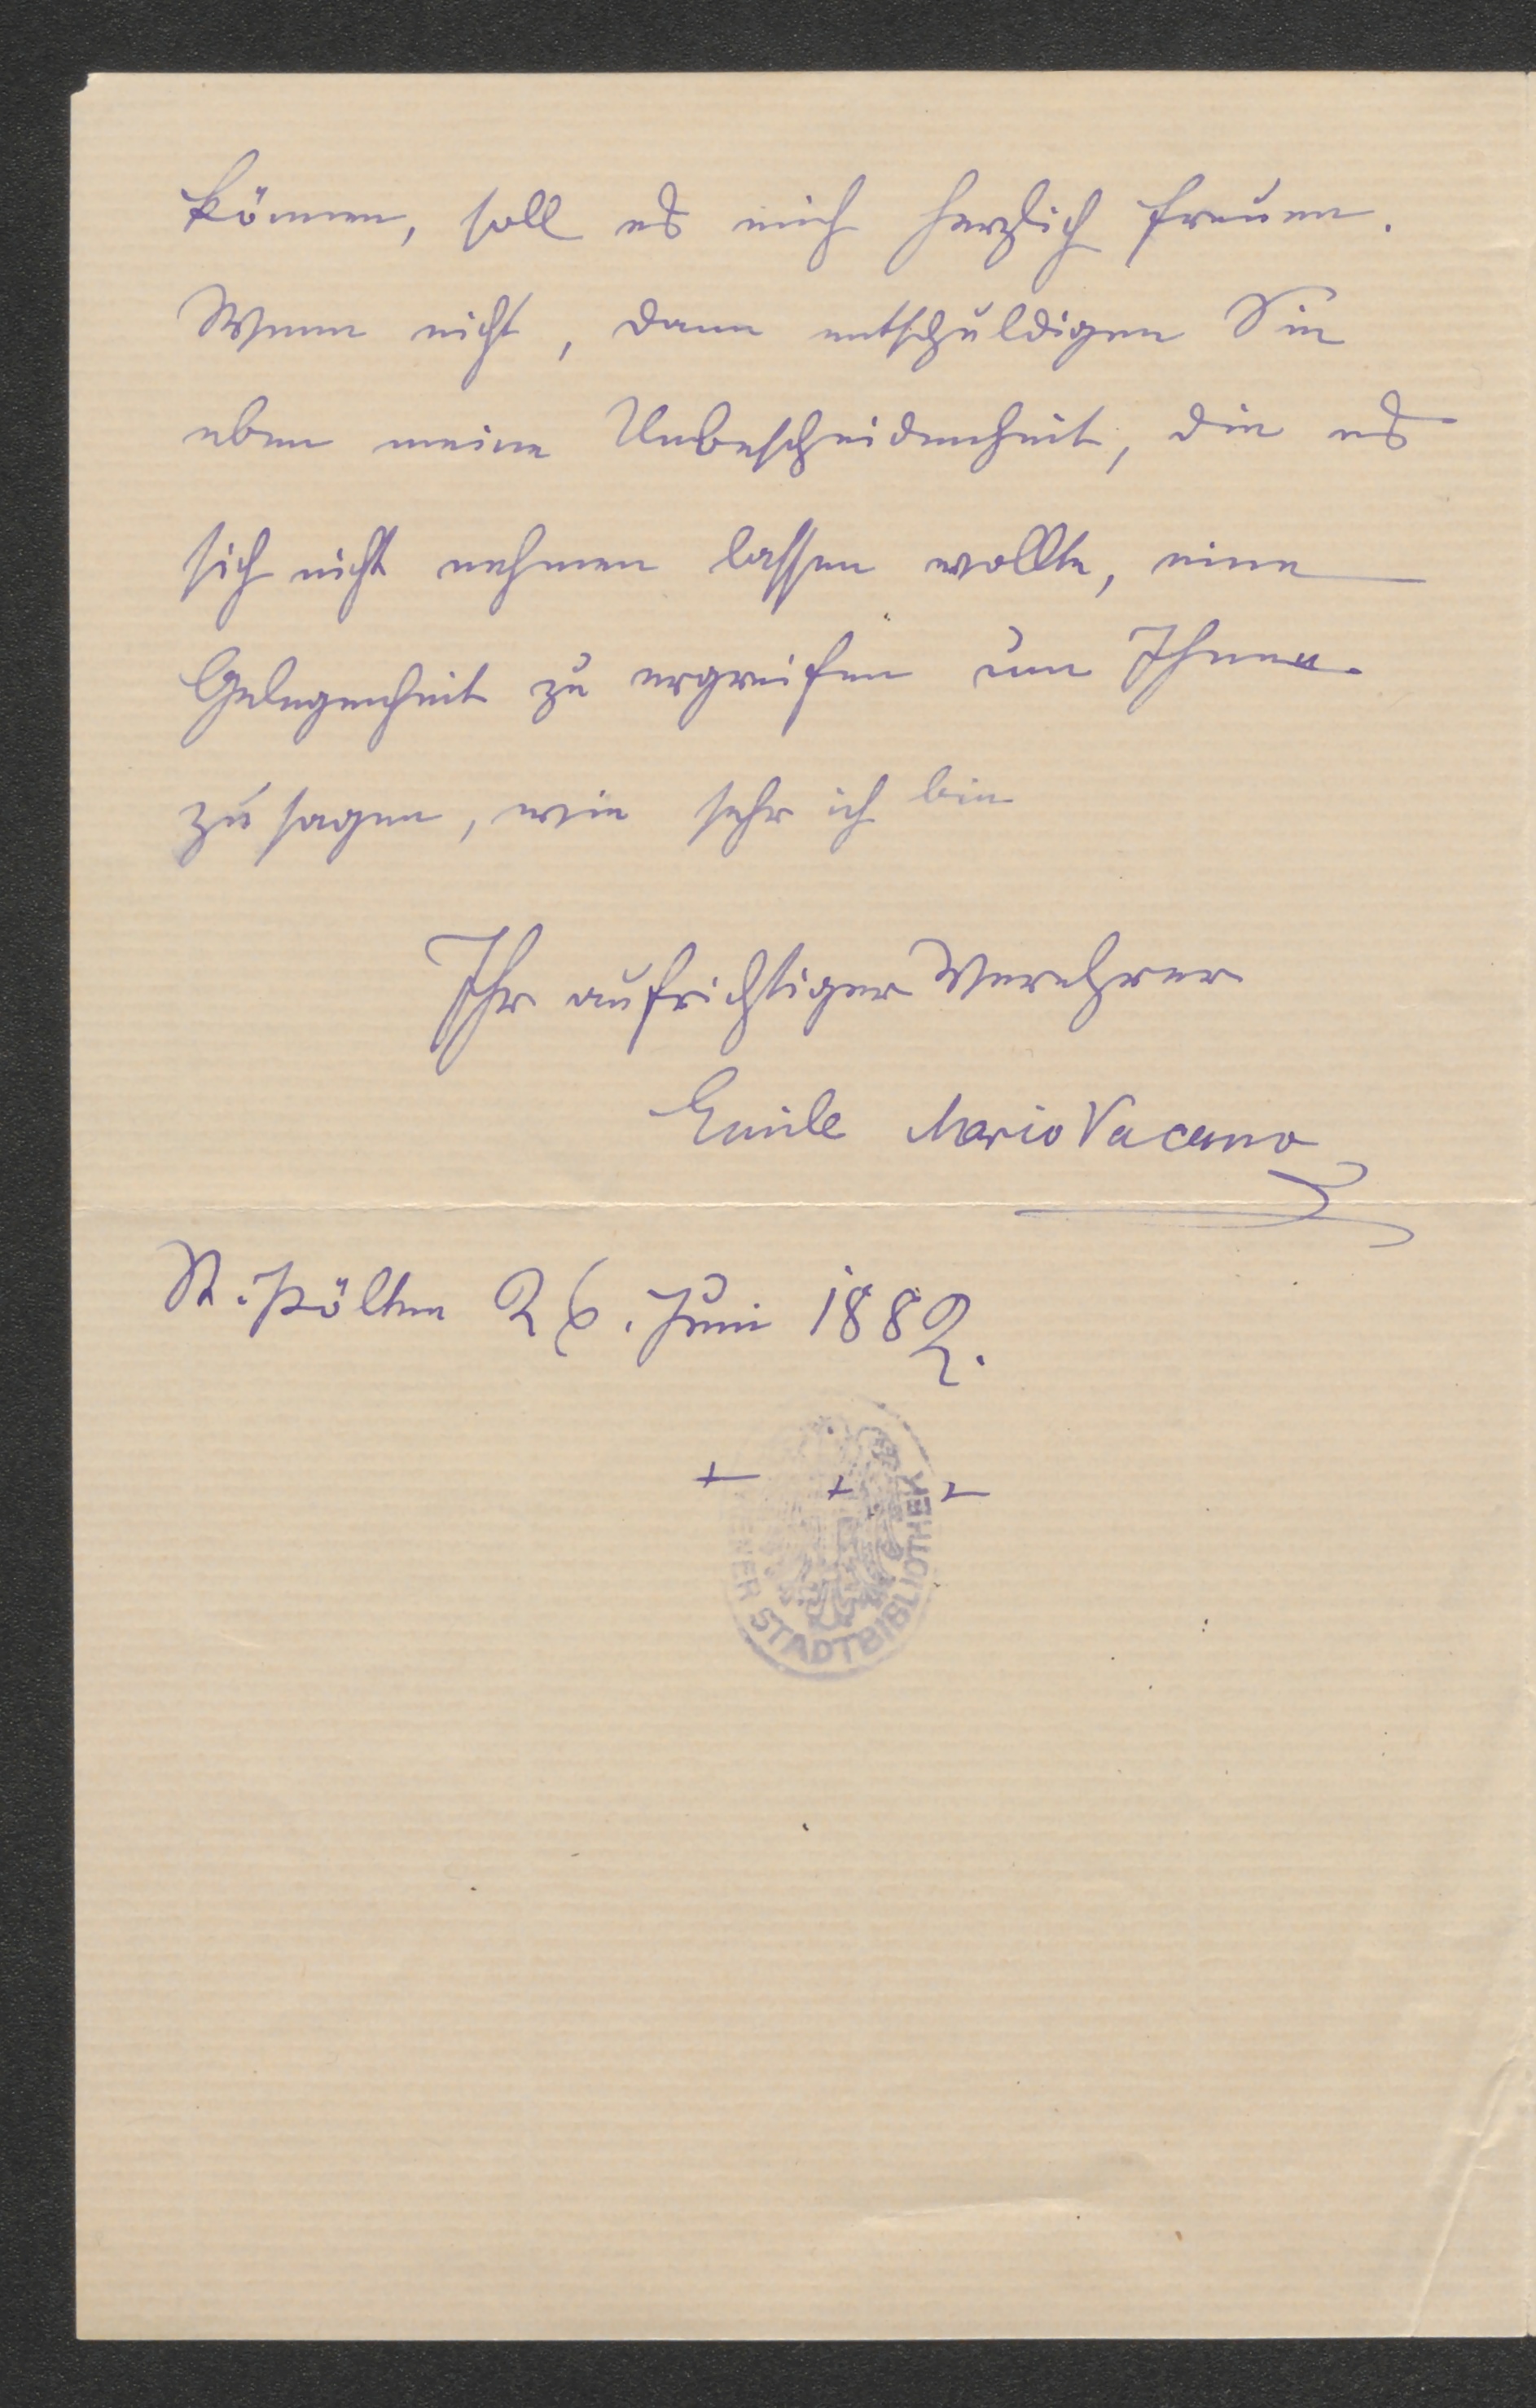 können, soll es mich herzlich freuen.
Wenn nicht, dann entschuldigen Sie
eben meine Unbescheidenheit, die es
sich nicht nehmen lassen wollte, eine
Gelegenheit zu ergreifen um Ihnen
zu sagen, wie sehr ich bin
Ihr aufrichtiger Verehrer
Emile Mario Vacano
St. Pölten 26. Juni 1882.
WIENER STADTBIBLIOTHEK